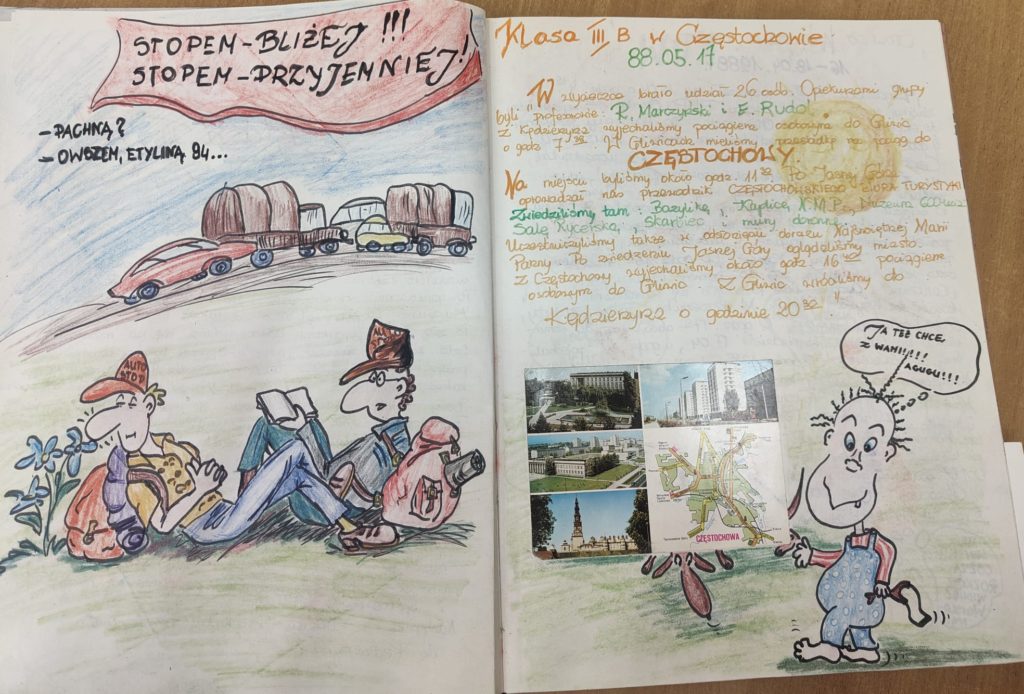 STOPEM-BLIŻEJ !!!
STOPEM-PRZYJEMNIEJ!
- PACHNĄ?
- OWSZEM, ETYLINĄ 94...
AUTO
STOP
Klasa III B w Częstochowie
88.05.17
W wycieczce brało udział 26 osób. Opiekunami grupy
byli "profesorkie": R. Marczyński i E. Rudol.
Z Kędzierzyna wyjechaliśmy pociągiem osobowym do Gliwic
o godz. 7 38. W Gliwicach mieliśmy przesiadkę na pociąg do
CZĘSTOCHOWY.
Na miejscu byliśmy około godz. 11 Po Jasnej Górze
oprowadzał nas przewodnik CZĘSTOCHOWSKIEGO BIURA TURYSTYKI
Zwiedziliśmy tam: Bazylikę, Kaplicę N.M.P., Muzeum 600-lecia
Salę Rycerską, skarbiec i mury obronne.
Uczestniczyliśmy także w odsłonięciu obrazu Najświętszej Marii
Panny. Po zwiedzeniu Jasnej Góry oglądaliśmy miasto.
Z Częstochowy wyjechaliśmy około godz. 16 pociągiem
osobowym do Gliwic. Z Gliwic wróciliśmy do
Kędzierzyna o godzinie 20 32."
JA TEŻ CHCĘ
Z WAMI!!!!!
AGUGU!!!
CZĘSTOCHOWA